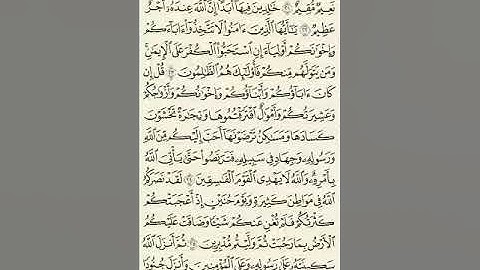 نَعِيمٌ مُّقِيمٌ ۝٢١ خَٰلِدِينَ فِيهَآ أَبَدًا إِنَّ ٱللَّهَ عِندَهُۥٓ أَجْرٌ
عَظِيمٌ ۝٢٢ يَٰٓأَيُّهَا ٱلَّذِينَ ءَامَنُوا۟ لَا تَتَّخِذُوٓا۟ ءَابَآءَكُمْ
وَإِخْوَٰنَكُمْ أَوْلِيَآءَ إِنِ ٱسْتَحَبُّوا۟ ٱلْكُفْرَ عَلَى ٱلْإِيمَٰنِ
وَمَن يَتَوَلَّهُم مِّنكُمْ فَأُو۟لَٰٓئِكَ هُمُ ٱلظَّٰلِمُونَ ۝٢٣ قُلْ إِن
كَانَ ءَابَآؤُكُمْ وَأَبْنَآؤُكُمْ وَإِخْوَٰنُكُمْ وَأَزْوَٰجُكُمْ
وَعَشِيرَتُكُمْ وَأَمْوَٰلٌ ٱقْتَرَفْتُمُوهَا وَتِجَٰرَةٌ تَخْشَوْنَ
كَسَادَهَا وَمَسَٰكِنُ تَرْضَوْنَهَآ أَحَبَّ إِلَيْكُم مِّنَ ٱللَّهِ
وَرَسُولِهِۦ وَجِهَادٍ فِى سَبِيلِهِۦ فَتَرَبَّصُوا۟ حَتَّىٰ يَأْتِىَ ٱللَّهُ
بِأَمْرِهِۦ وَٱللَّهُ لَا يَهْدِى ٱلْقَوْمَ ٱلْفَٰسِقِينَ ۝٢٤ لَقَدْ نَصَرَكُمُ
ٱللَّهُ فِى مَوَاطِنَ كَثِيرَةٍ وَيَوْمَ حُنَيْنٍ إِذْ أَعْجَبَتْكُمْ
كَثْرَتُكُمْ فَلَمْ تُغْنِ عَنكُمْ شَيْـًٔا وَضَاقَتْ عَلَيْكُمُ
ٱلْأَرْضُ بِمَا رَحُبَتْ ثُمَّ وَلَّيْتُم مُّدْبِرِينَ ۝٢٥ ثُمَّ أَنزَلَ ٱللَّهُ
سَكِينَتَهُۥ عَلَىٰ رَسُولِهِۦ وَعَلَى ٱلْمُؤْمِنِينَ وَأَنزَلَ جُنُودًا